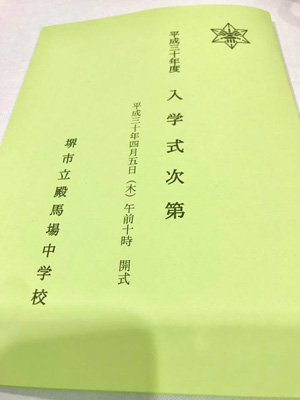 平成三十年度 入学式次第
平成三十年四月五日（木）午前十時 開式
堺市立殿馬場中学校